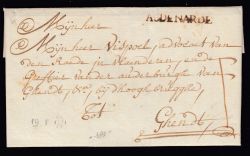 AUDENARDE
Mijn heer
Mijn heer Vispoel, advocaet van
den Raede in vlaenderen, ende
Greffier vander auderburgh van
Ghendt, &c, op d'hooghbrugghe,
Tot
Ghendt